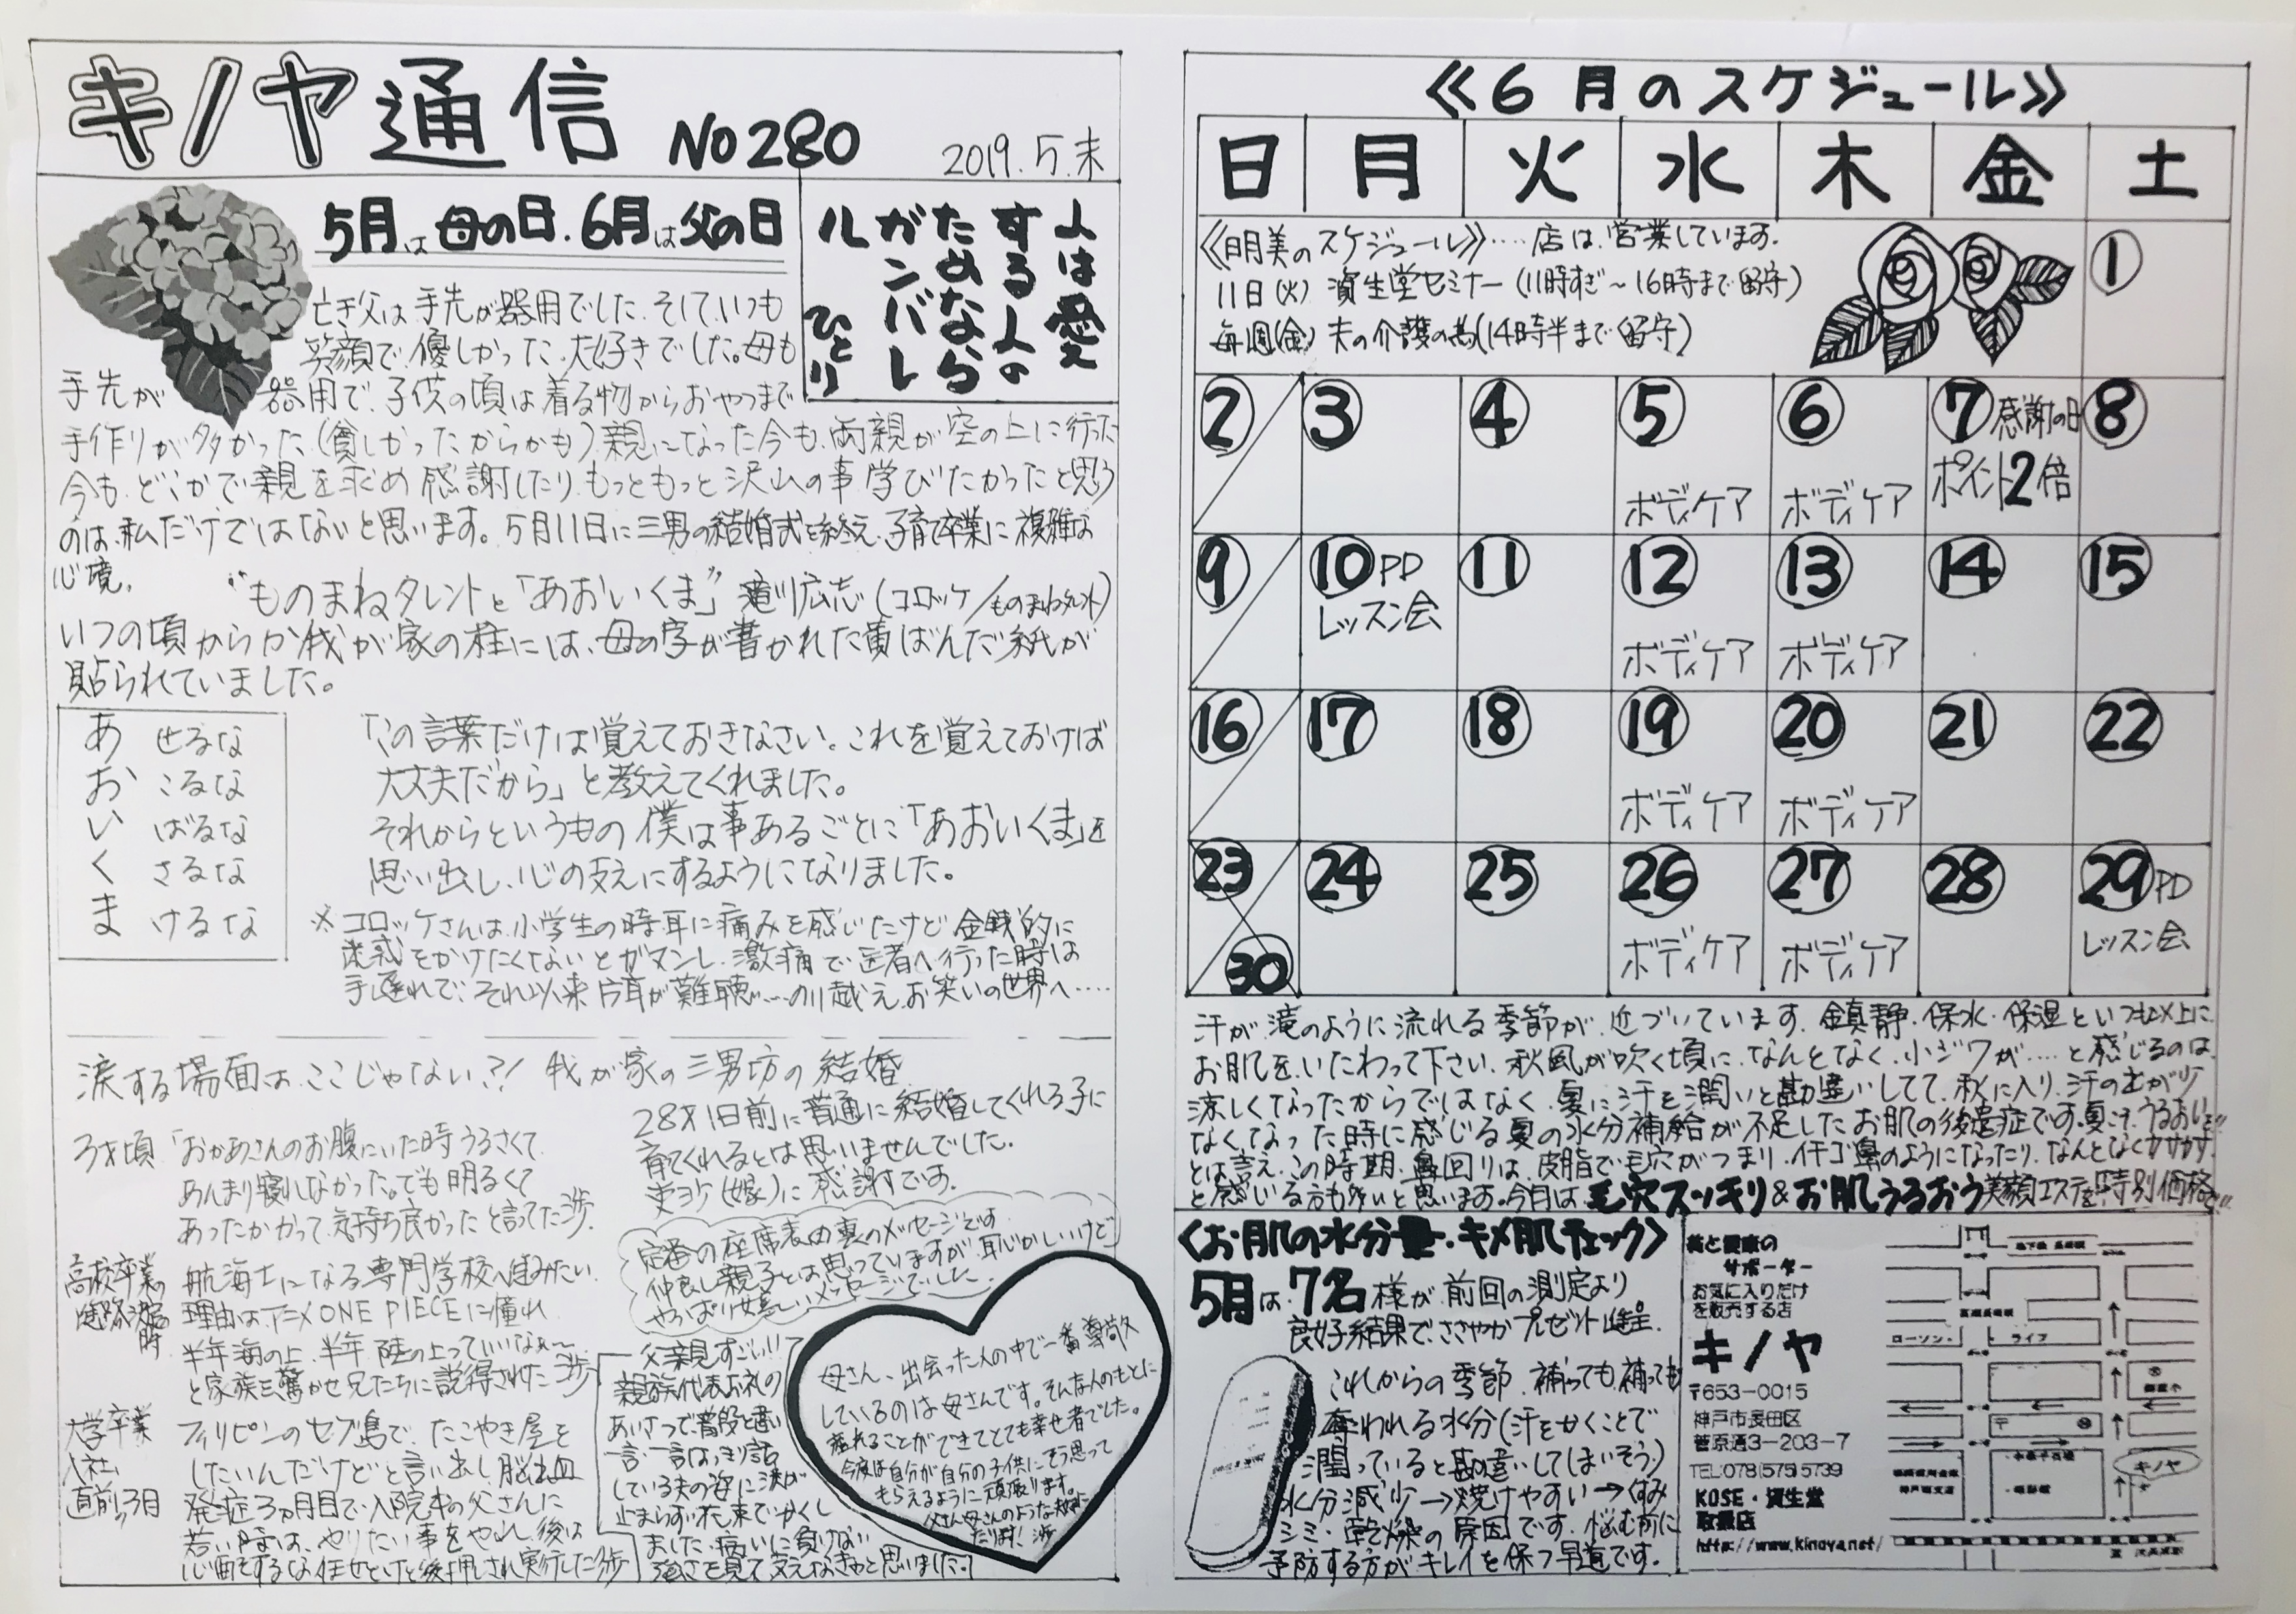 キノヤ通信 No280
2019.5.末
5月は母の日.6月は父の日
人は愛
する人の
ためなら
ガンバレ
ル ひとり
亡き父は手先が器用でした.そしていつも
笑顔で優しかった.大好きでした。母も
手先が器用で、子供の頃は着る物からおやつまで
手作りが多かった(貧しかったからかも)親になった今も、両親が空の上に行った
今も、どこかで親を求め感謝したり、もっともっと沢山の事学びたかったと思う
のは、私だけではないと思います。5月11日に三男の結婚式を終え、子育て卒業に複雑な
心境。
"ものまねタレントと「あおいくま」" 滝川広志(コロッケ/ものまねタレント)
いつの頃からか我が家の柱には、母の字が書かれた黄ばんだ紙が
貼られていました。
あ せるな
お こるな
い ばるな
く さるな
ま けるな
「この言葉だけは覚えておきなさい。これを覚えておけば
大丈夫だから」と教えてくれました。
それからというもの僕は事あるごとに「あおいくま」を
思い出し、心の支えにするようになりました。
※コロッケさんは、小学生の時耳に痛みを感じたけど金銭的に
迷惑をかけたくないとガマンし、激痛で医者へ行った時は
手遅れで、それ以来片耳が難聴....のり越え、お笑いの世界へ.....
涙する場面は、ここじゃない?! 我が家の三男坊の結婚
3才頃 「おかあさんのお腹にいた時うるさくて
あんまり寝れなかった。でも明るくて
あったかかって、気持ち良かったと言ってた渉.
高校卒業の
進路決定の
時
航海士になる専門学校へ進みたい.
理由は、アニメONE PIECEに憧れ
半年海の上、半年陸の上っていいなぁ〜
と家族を驚かせ兄たちに説得された渉
大学卒業
入社
直前の3日
フィリピンのセブ島で、たこやき屋を
したいんだけどと言い出し、脳出血
発症3ヵ月目で入院中の父さんに
若い時は、やりたい事をやれ、後は
心配をするな、任せといてと後押しされ実行した渉
28才1日前に普通に結婚してくれる子に
育てくれるとは思いませんでした.
(嫁)に感謝です.
定番の座席表の裏のメッセージです
仲良し親子とは思っていますが、恥じかしいけど
やっぱり嬉しいメッセージでした.
父親すごい!!
親族代表お礼の
あいさつで、普段と違い
一言一言はっきり話
している夫の姿に涙が
止まらず花束でかくし
ました.病いに負けない
強さを見て支えなきゃと思いました。
母さん、出会った人の中で一番尊敬
しているのは母さんです。そんな人のもとに
産れることができてとても幸せ者でした。
今度は自分が自分の子供にそう思って
もらえるように頑張ります。
父さん母さんのような夫婦に
なります! 渉
≪6月のスケジュール≫
日 月 火 水 木 金 土
≪明美のスケジュール≫....店は、営業しています.
11日(火) 資生堂セミナー(11時すぎ〜16時まで留守)
毎週(金) 夫の介護の為(14時半まで留守)
1
2 3 4 5 6 7感謝の日 8
ボディケア ボディケア ポイント2倍
9 10 PD 11 12 13 14 15
レッスン会 ボディケア ボディケア
16 17 18 19 20 21 22
ボディケア ボディケア
23 24 25 26 27 28 29 PD
30 ボディケア ボディケア レッスン会
汗が滝のように流れる季節が、近づいています.鎮静・保水・保湿といつも以上に
お肌をいたわって下さい.秋風が吹く頃に、なんとなく、小ジワが....と感じるのは、
涼しくなったからではなく、夏に汗を潤いと勘違いしてて、秋に入り、汗の出が少
なくなった時に感じる夏の水分補給が不足したお肌の後遺症です.夏こそ、うるおいを!!
とは言え、この時期、鼻回りは、皮脂で毛穴がつまり、イチゴ鼻のようになったり、なんとなくカサカサ.
と感じる方も多いと思います。今月は、毛穴スッキリ&お肌うるおう美顔エステを特別価格で!!
<お肌の水分量・キメ肌チェック>
5月は7名様が、前回の測定より
良好結果で、ささやかプレゼント進呈.
これからの季節、補っても、補っても
奪われる水分(汗をかくことで
潤っていると勘違いしてしまいそう)
水分減少→焼けやすい→くすみ
シミ・乾燥の原因です.悩む前に
予防する方がキレイを保つ早道です.
美と健康の
サポーター
お気に入りだけ
を販売する店
キノヤ
〒653-0015
神戸市長田区
菅原通3-203-7
TEL:078(575)5739
KOSE・資生堂
取扱店
http://www.kinoya.net/
ローソン・ ライフ
キノヤ